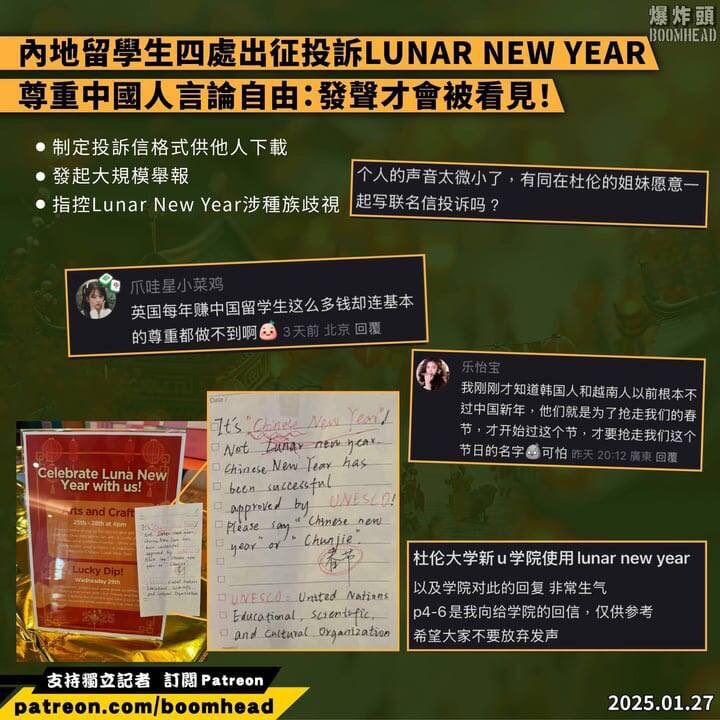 爆炸頭
BOOMHEAD
內地留學生四處出征投訴LUNAR NEW YEAR
尊重中國人言論自由：發聲才會被看見！
制定投訴信格式供他人下載
發起大規模舉報
指控Lunar New Year涉種族歧視
个人的声音太微小了，有同在杜伦的姐妹愿意一
起写联名信投诉吗？
爪哇星小菜鸡
英国每年赚中国留学生这么多钱却连基本
的尊重都做不到啊 3天前 北京 回覆
乐怡宝
我刚刚才知道韩国人和越南人以前根本不
过中国新年，他们就是为了抢走我们的春
节，才开始过这个节，才要抢走我们这个
节日的名字 可怕 昨天 20:12 廣東 回覆
Celebrate Luna New
Year with us!
Arts and Craft
25th - 28th at 4pm
Lucky Dip!
Wednesday 29th
Date /
It's "Chinese New Year"!
Not Lunar new year.
Chinese New Year has
been successful
approved by UNESCO!
Please say "Chinese new
year" or "Chunjie"
春节
UNESCO: United Nations
Educational, Scientific,
and Cultural Organization
杜伦大学新u学院使用lunar new year
以及学院对此的回复 非常生气
p4-6是我向给学院的回信，仅供参考
希望大家不要放弃发声
支持獨立記者 訂閱Patreon
patreon.com/boomhead
2025.01.27